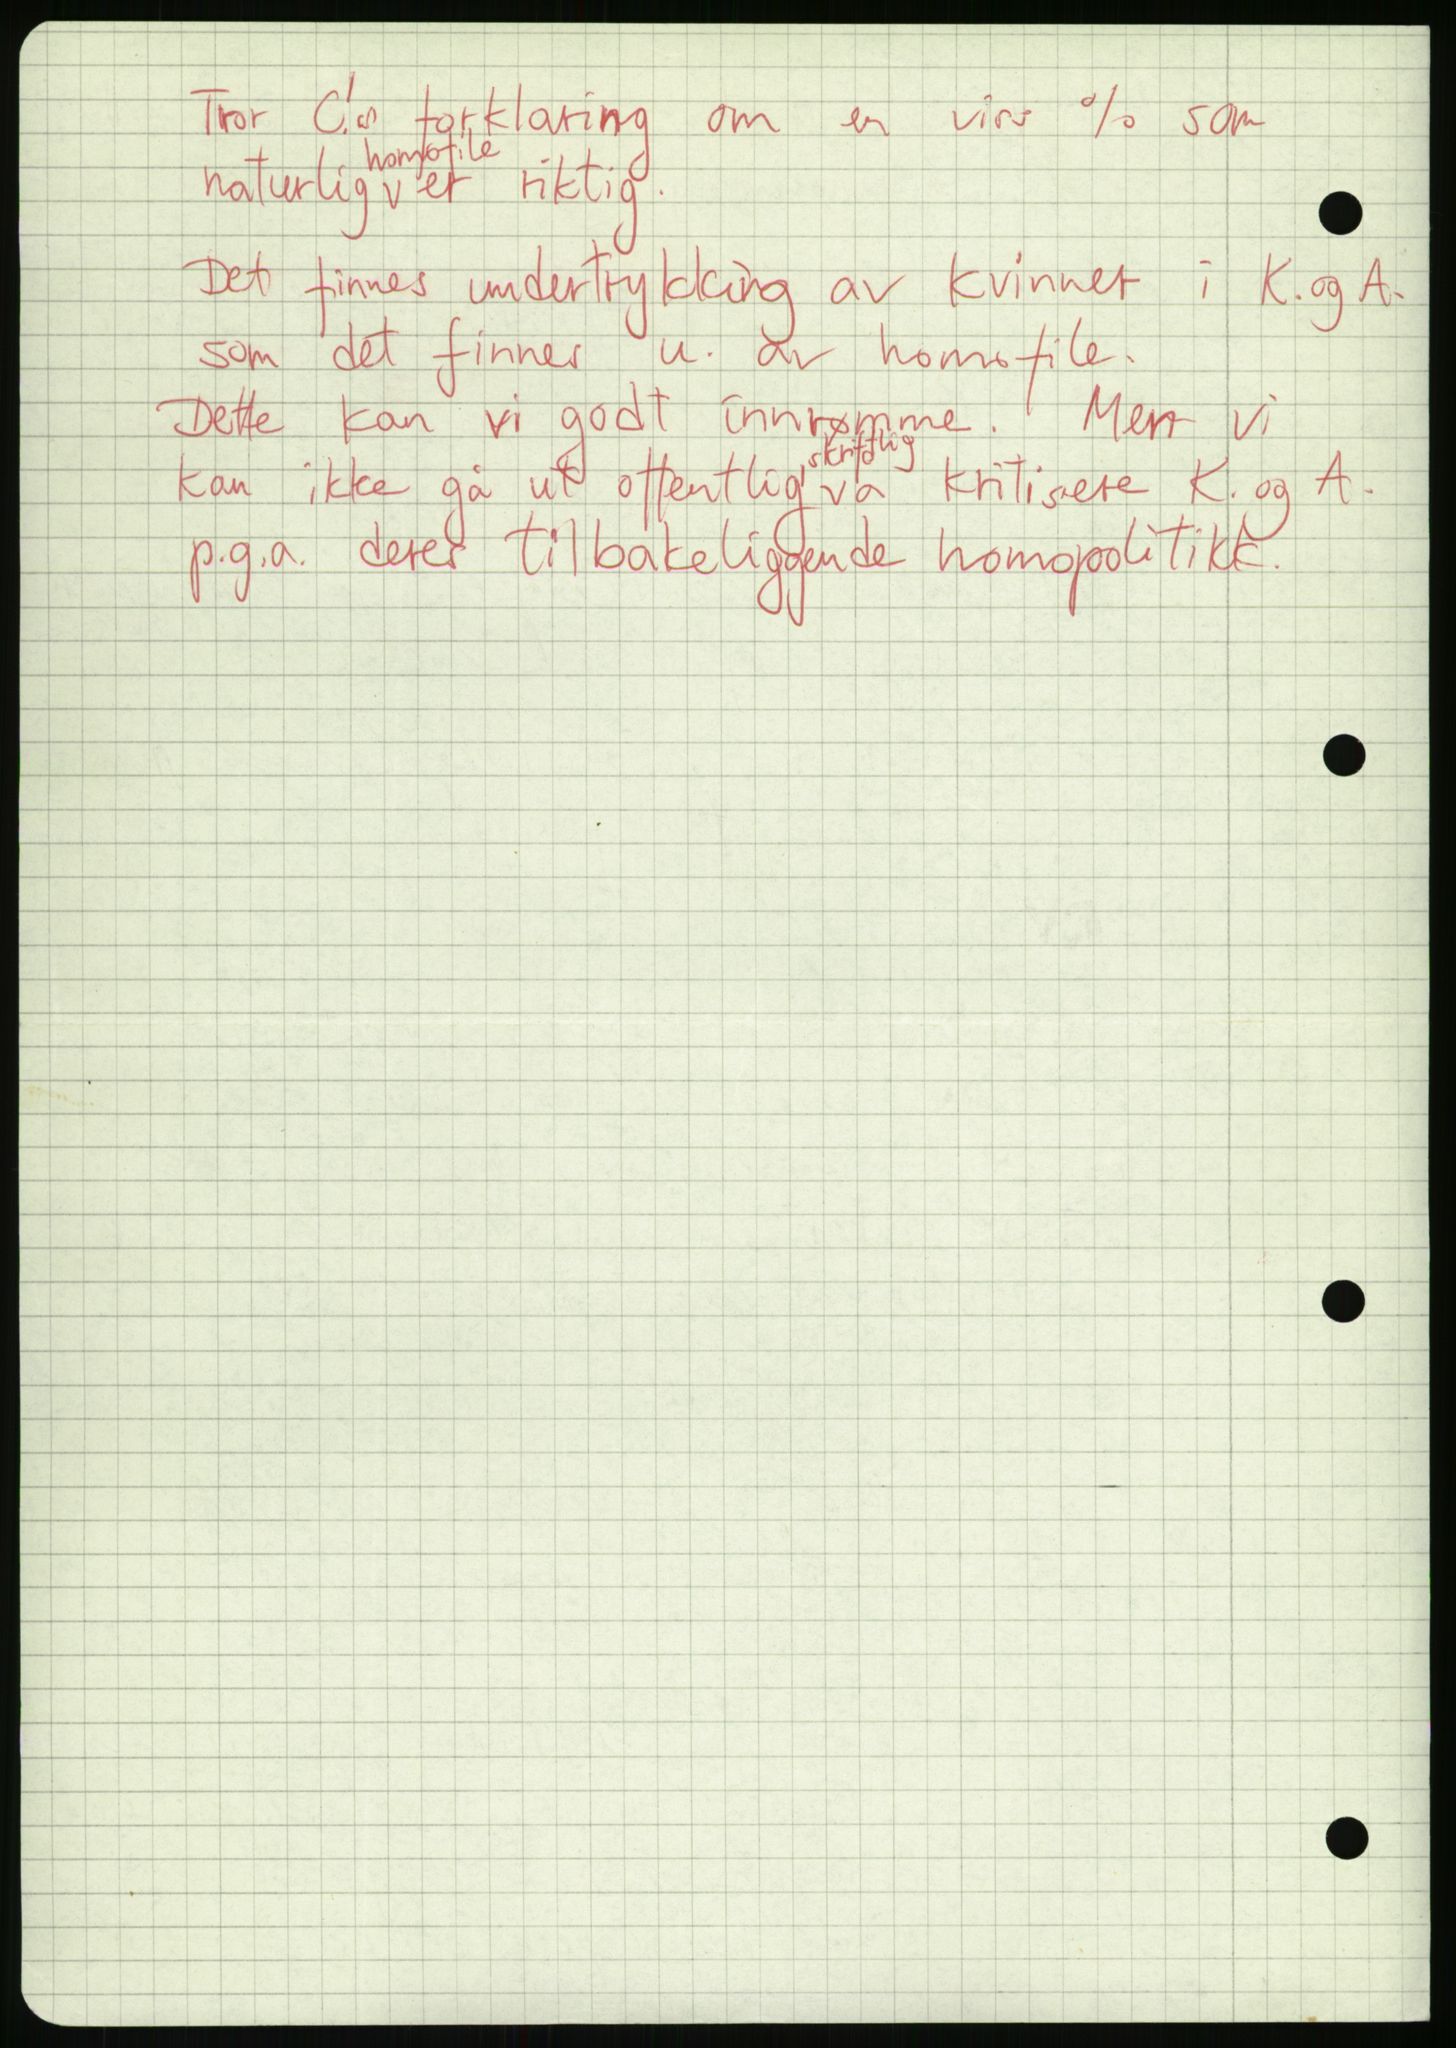 Tror C.'s forklaring om en viss % som
naturlig homofile er riktig.
Det finnes undertrykking av kvinner i K. og A.
som det finnes u. av homofile.
Dette kan vi godt innrømme. Men vi
kan ikke gå ut offentlig skriftlig å kritisere K. og A.
p.g.a. deres tilbakeliggende homopolitikk.